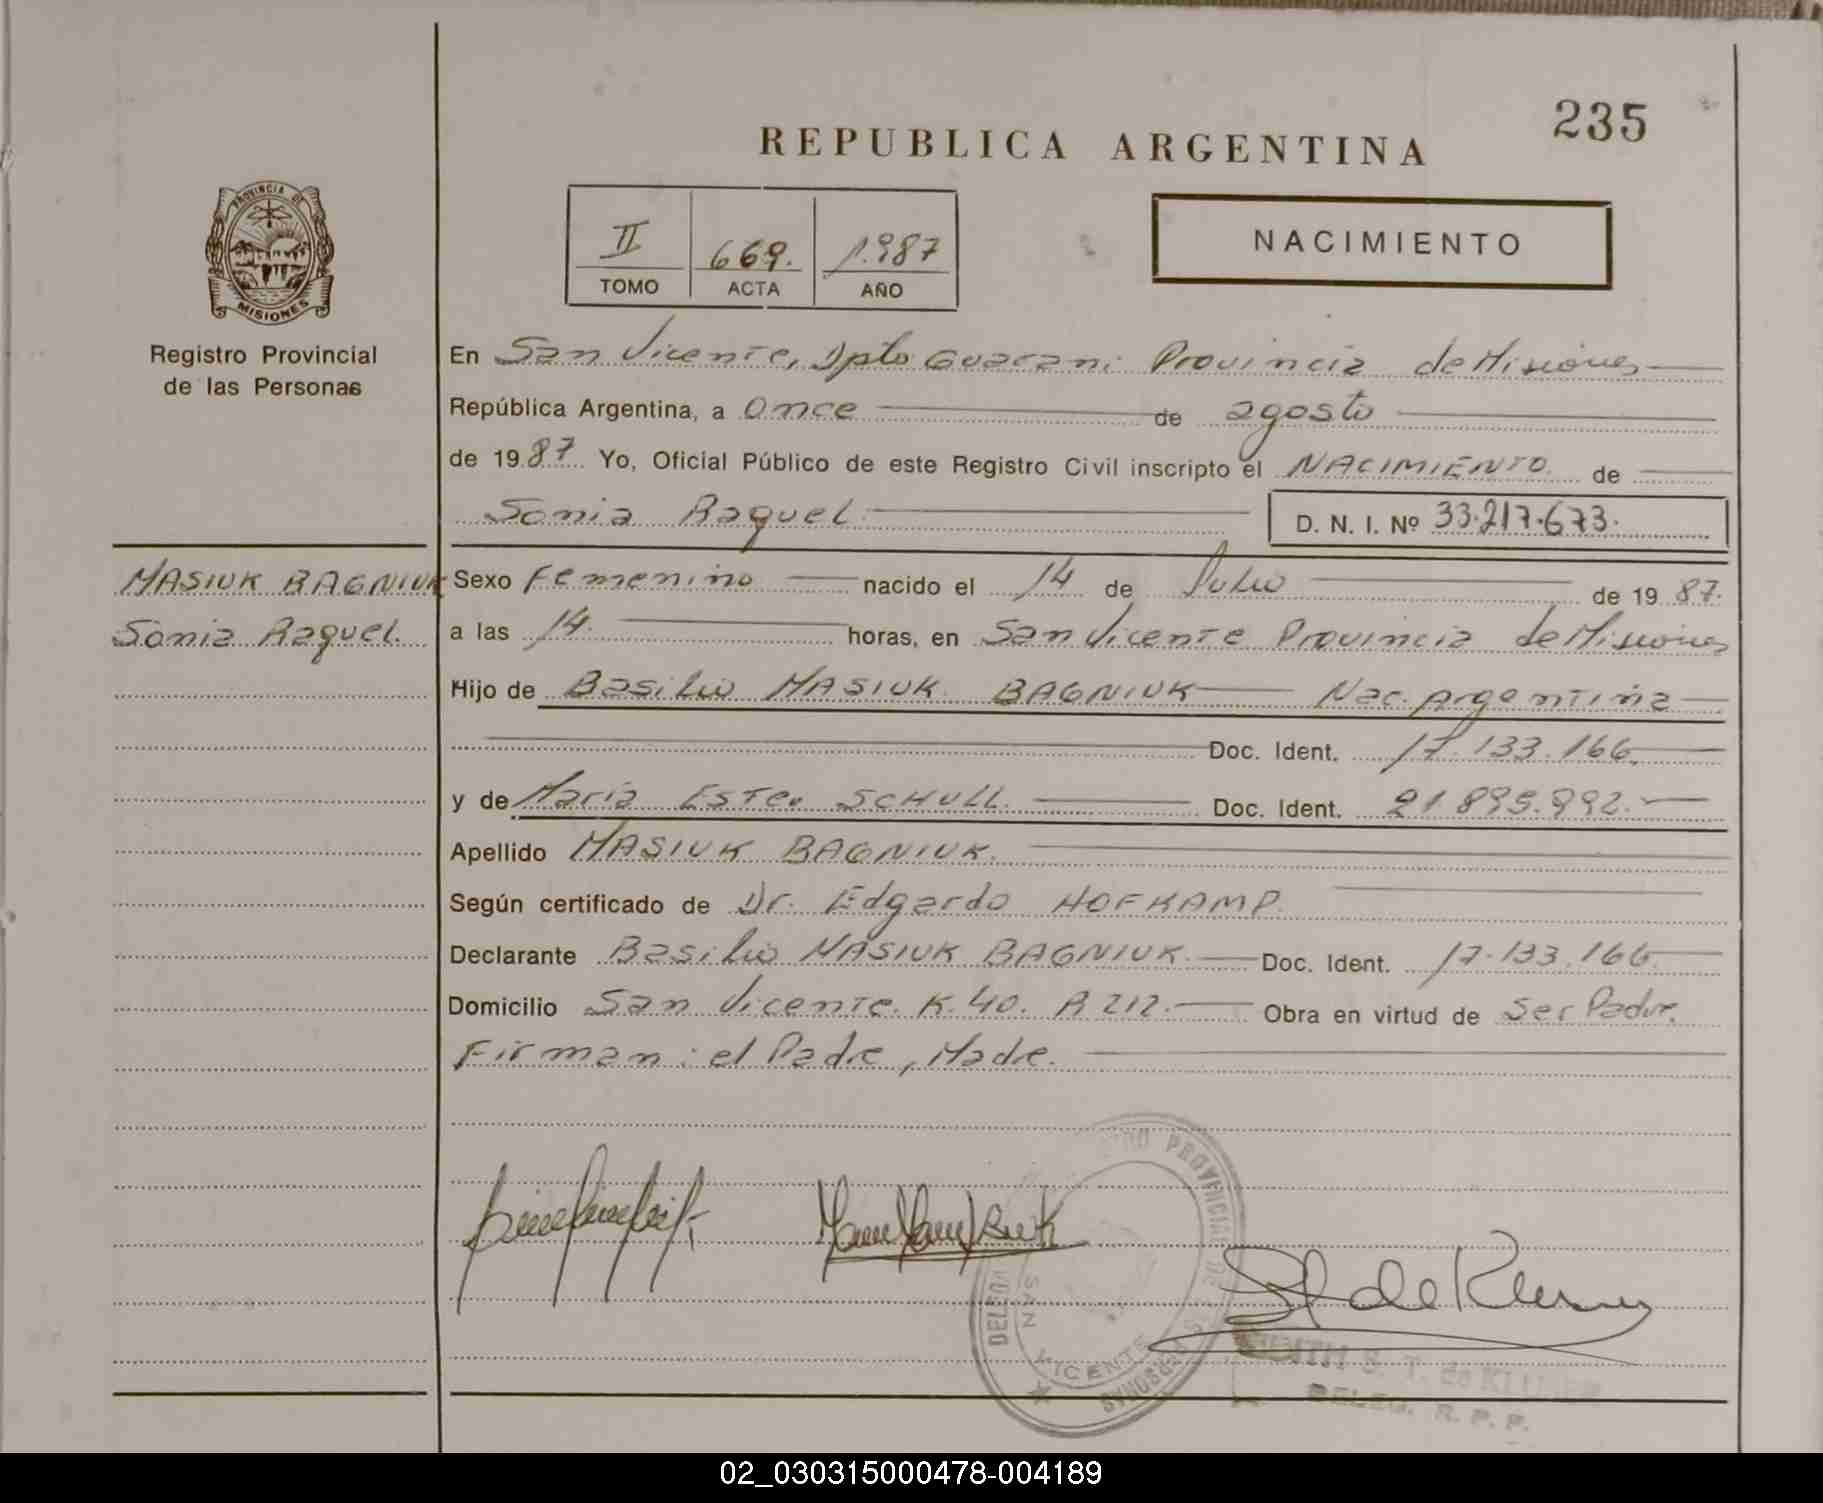 235
REPUBLICA ARGENTINA
II 669. 1.987
TOMO ACTA AÑO
NACIMIENTO
PROVINCIA DE
MISIONES
Registro Provincial
de las Personas
En San Vicente, Dpto Guarani Provincia de Misiones
República Argentina, a Once de agosto
de 1987. Yo, Oficial Público de este Registro Civil inscripto el NACIMIENTO de
Sonia Raquel D. N. I. Nº 33.217.673.
MASIUK BAGNIUK
Sonia Raquel.
Sexo Femenino nacido el 14 de Julio de 1987.
a las 14. horas, en San Vicente Provincia de Misiones
Hijo de Basilio MASIUK BAGNIUK Nac. Argentina
Doc. Ident. 17.133.166
y de Maria Ester SCHULL. Doc. Ident. 21.895.892.
Apellido MASIUK BAGNIUK.
Según certificado de Dr. Edgardo HOFKAMP.
Declarante Basilio MASIUK BAGNIUK. Doc. Ident. 17.133.166
Domicilio San Vicente. K.40. R 212. Obra en virtud de Ser Padre.
Firman: el Padre, Madre.
PROVINCIAL DE
PERSONAS
SAN VICENTE
S. T. de
DELEG. R. P. P.
02_030315000478-004189